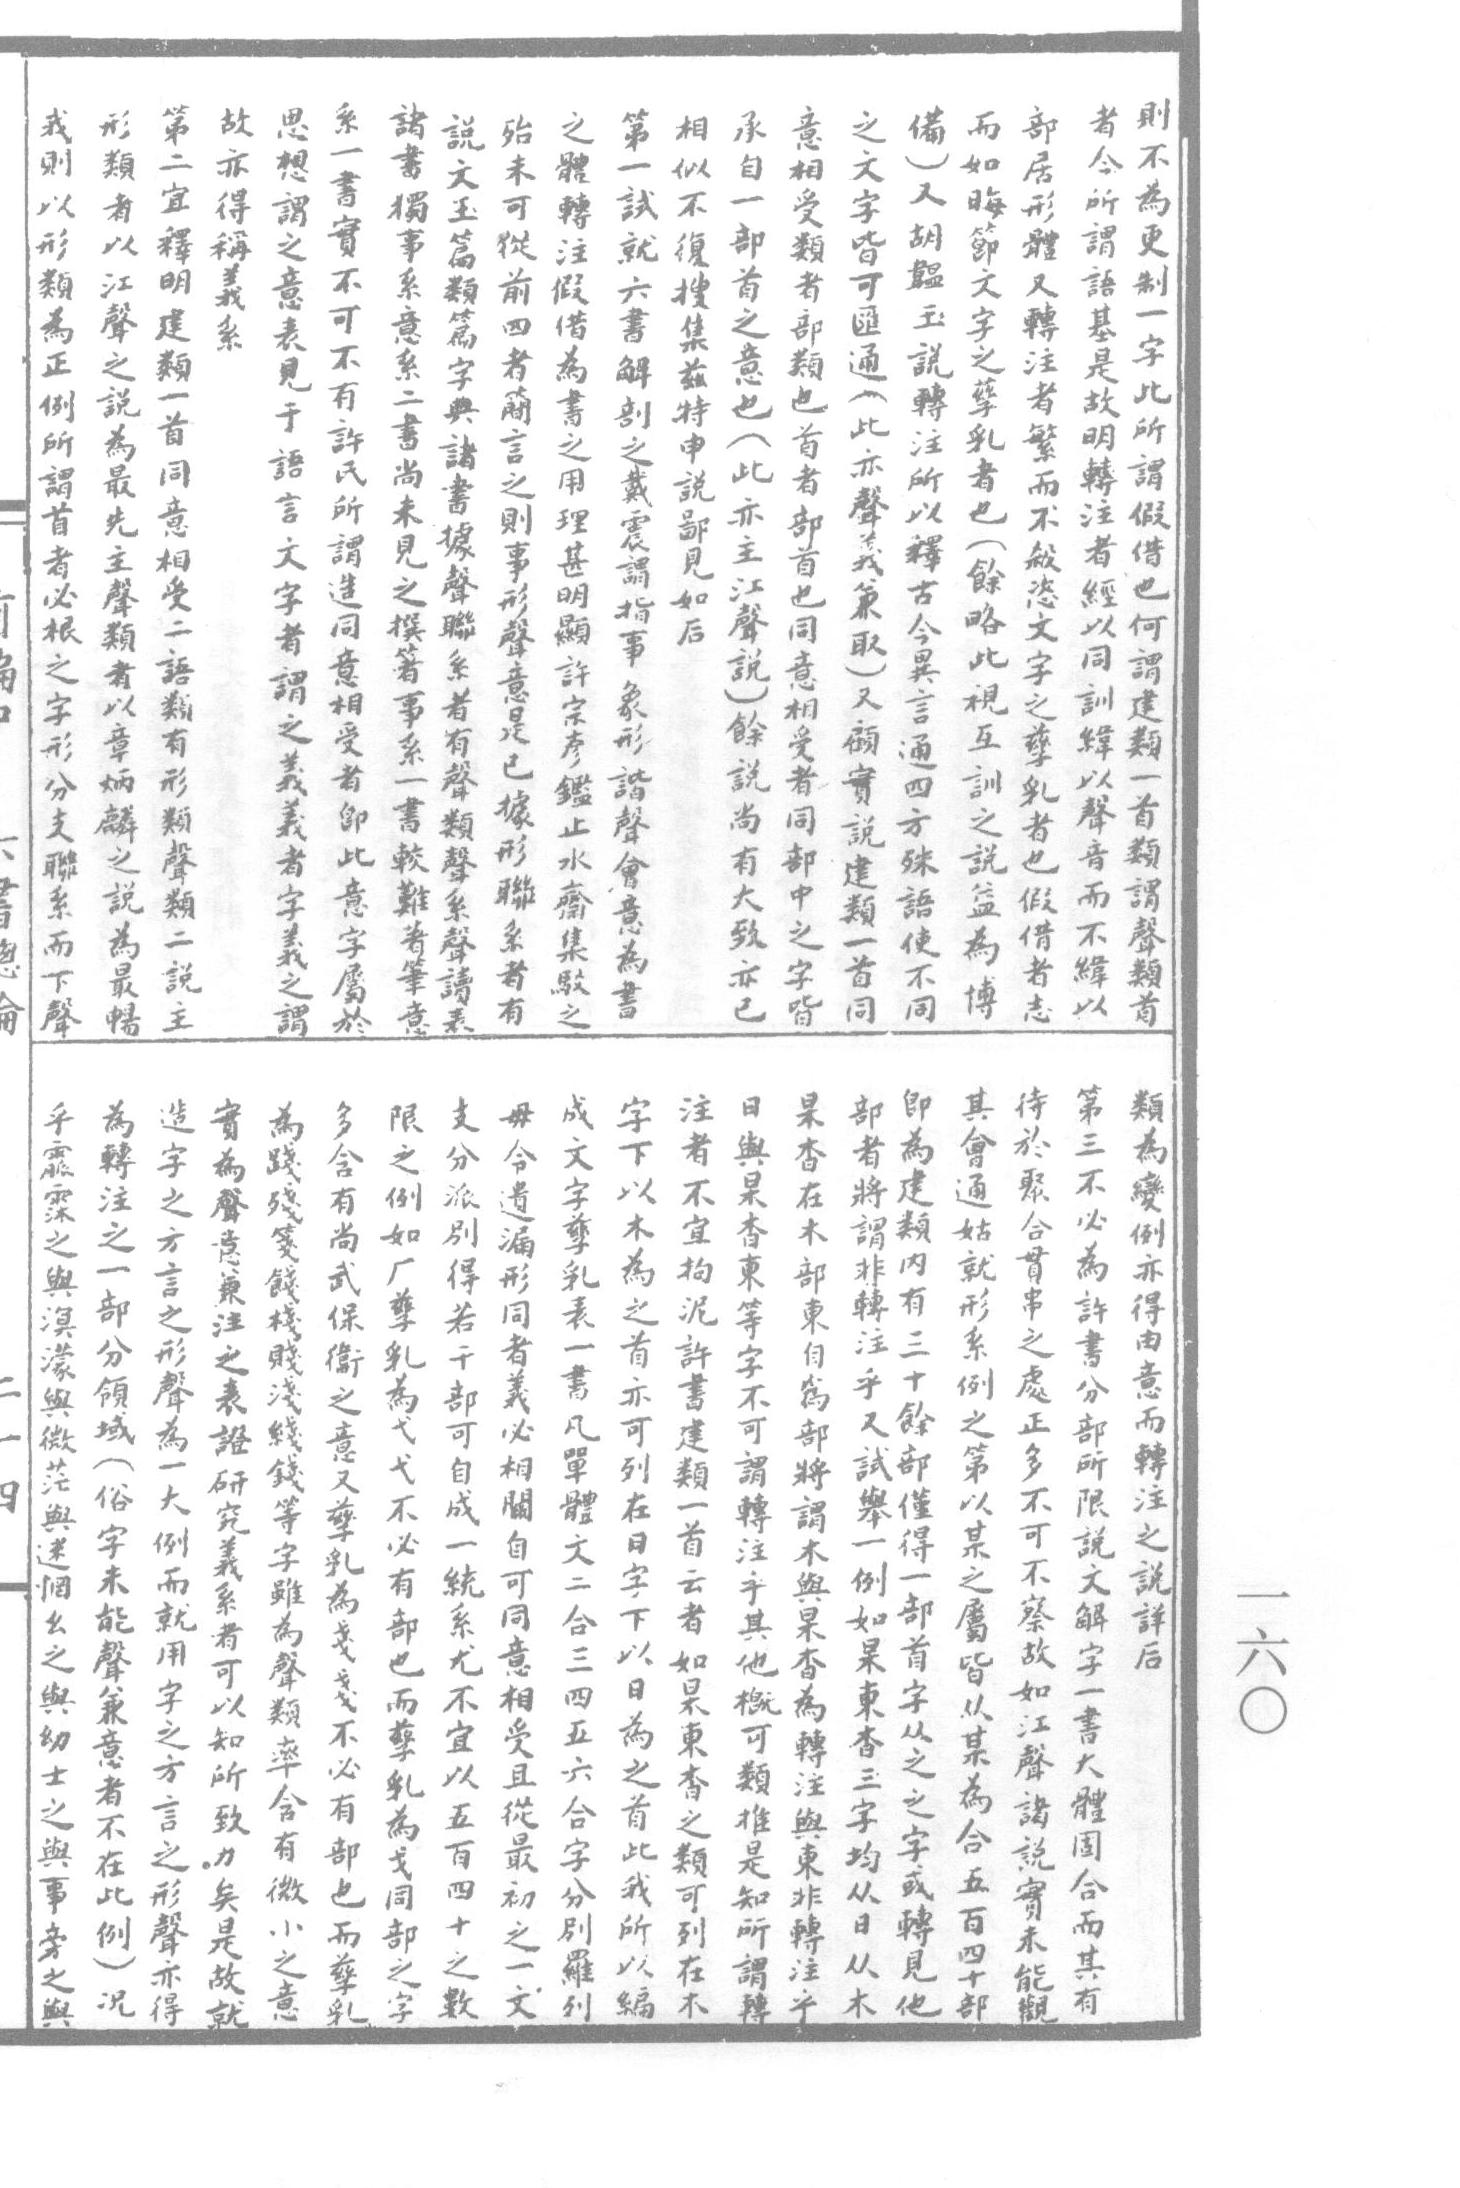 則不為更制一字此所謂假借也何謂建類一首類謂聲類首
者今所謂語基是故明轉注者經以同訓緯以聲音而不緯以
部居形體又轉注者繁而不殺恣文字之孳乳者也假借者志
而如晦節文字之孳乳者也(餘略此視互訓之說益為博
備)又胡韞玉說轉注所以釋古今異言通四方殊語使不同
之文字皆可匯通(此亦聲義兼取)又顧實說建類一首同
意相受類者部類也首者部首也同意相受者同部中之字皆
承自一部首之意也(此亦主江聲說)餘說尚有大致亦已
相似不復搜集茲特申說鄙見如后
第一試就六書解剖之戴震謂指事象形諧聲會意為書
之體轉注假借為書之用理甚明顯許宗彥鑑止水齋集駁之
殆未可從前四者簡言之則事形聲意是已據形聯系者有
說文玉篇類篇字典諸書據聲聯系者有聲類聲系聲讀表
諸書獨事系意系二書尚未見之撰箸事系一書較難著筆意
系一書實不可不有許氏所謂造同意相受者即此意字屬於
思想謂之意表見于語言文字者謂之義義者字義之謂
故亦得稱義系
第二宜釋明建類一首同意相受二語類有形類聲類二說主
形類者以江聲之說為最先主聲類者以章炳麟之說為最暢
我則以形類為正例所謂首者必根之字形分支聯系而下聲
類為變例亦得由意而轉注之說詳后
第三不必為許書分部所限說文解字一書大體固合而其有
待於聚合貫串之處正多不可不察故如江聲諸說實未能觀
其會通姑就形系例之第以某之屬皆从某為合五百四十部
即為建類內有三十餘部僅得一部首字从之之字或轉見他
部者將謂非轉注乎又試舉一例如杲東杳三字均从日从木
杲杳在木部東自為部將謂木與杲杳為轉注與東非轉注乎
日與杲杳東等字不可謂轉注乎其他概可類推是知所謂轉
注者不宜拘泥許書建類一首云者如杲東杳之類可列在木
字下以木為之首亦可列在日字下以日為之首此我所以編
成文字孳乳表一書凡單體文二合三四五六合字分別羅列
毋令遺漏形同者義必相關自可同意相受且從最初之一文
支分派別得若干部可自成一統系尤不宜以五百四十之數
限之例如厂孳乳為弋弋不必有部也而孳乳為戈同部之字
多含有尚武保衞之意又孳乳為戔戔不必有部也而孳乳
為踐殘箋餞棧賤淺綫錢等字雖為聲類率含有微小之意
實為聲意兼注之表證研究義系者可以知所致力矣是故就
造字之方言之形聲為一大例而就用字之方言之形聲亦得
為轉注之一部分領域(俗字未能聲兼意者不在此例)況
乎霢霂之與溟濛與微茫與迷惘幺之與幼士之與事旁之與
二十四
一六〇